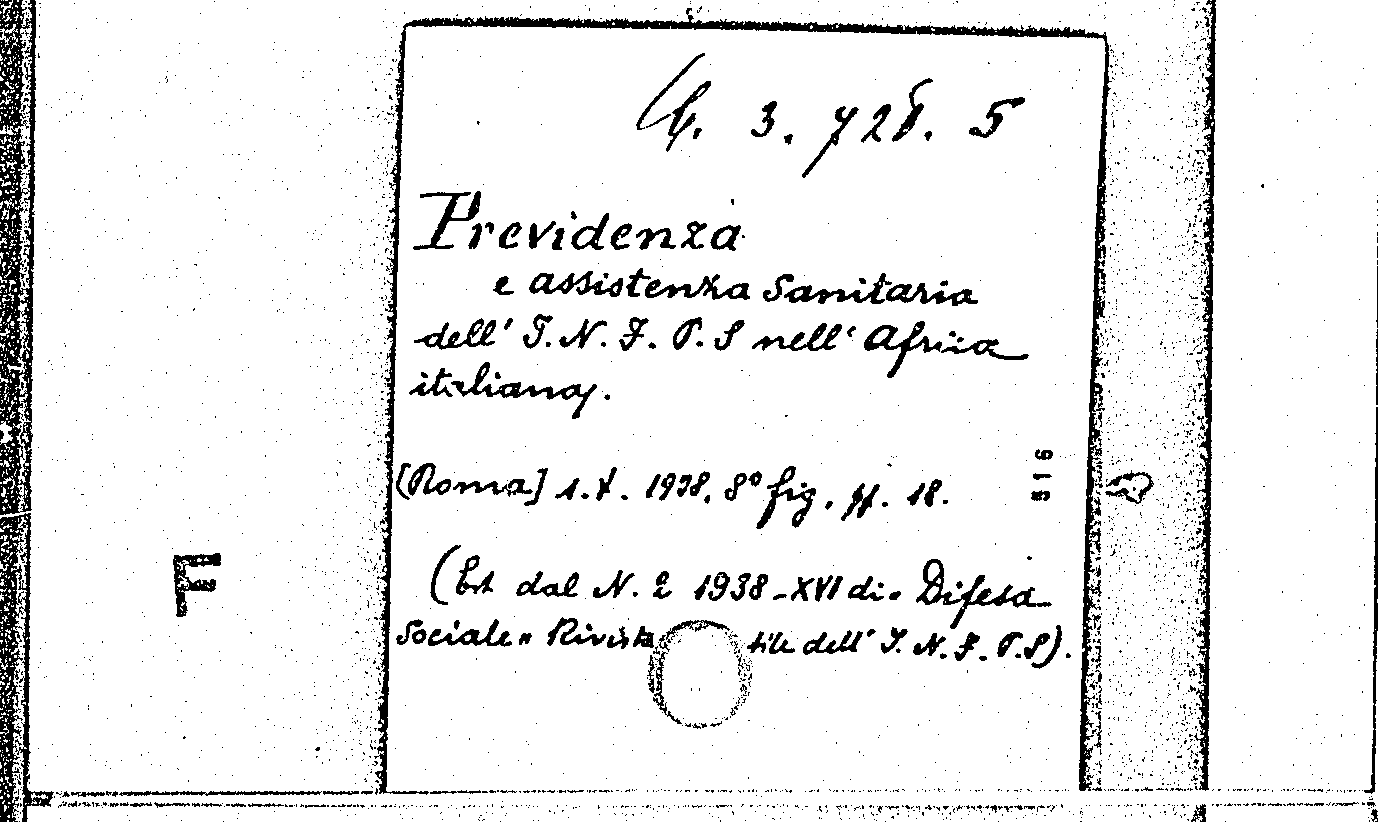 3. 728. 5
Previdenza
e assistenza Sanitaria
dell' I. N. F. P. S nell' Africa
italiana.
[Roma] s. t. 1938. 8° fig. pp. 18.
516
(Est dal N. 2 1938-XVI di " Difesa
F
Sociale " Rivista tile dell' I. N. F. P. S).